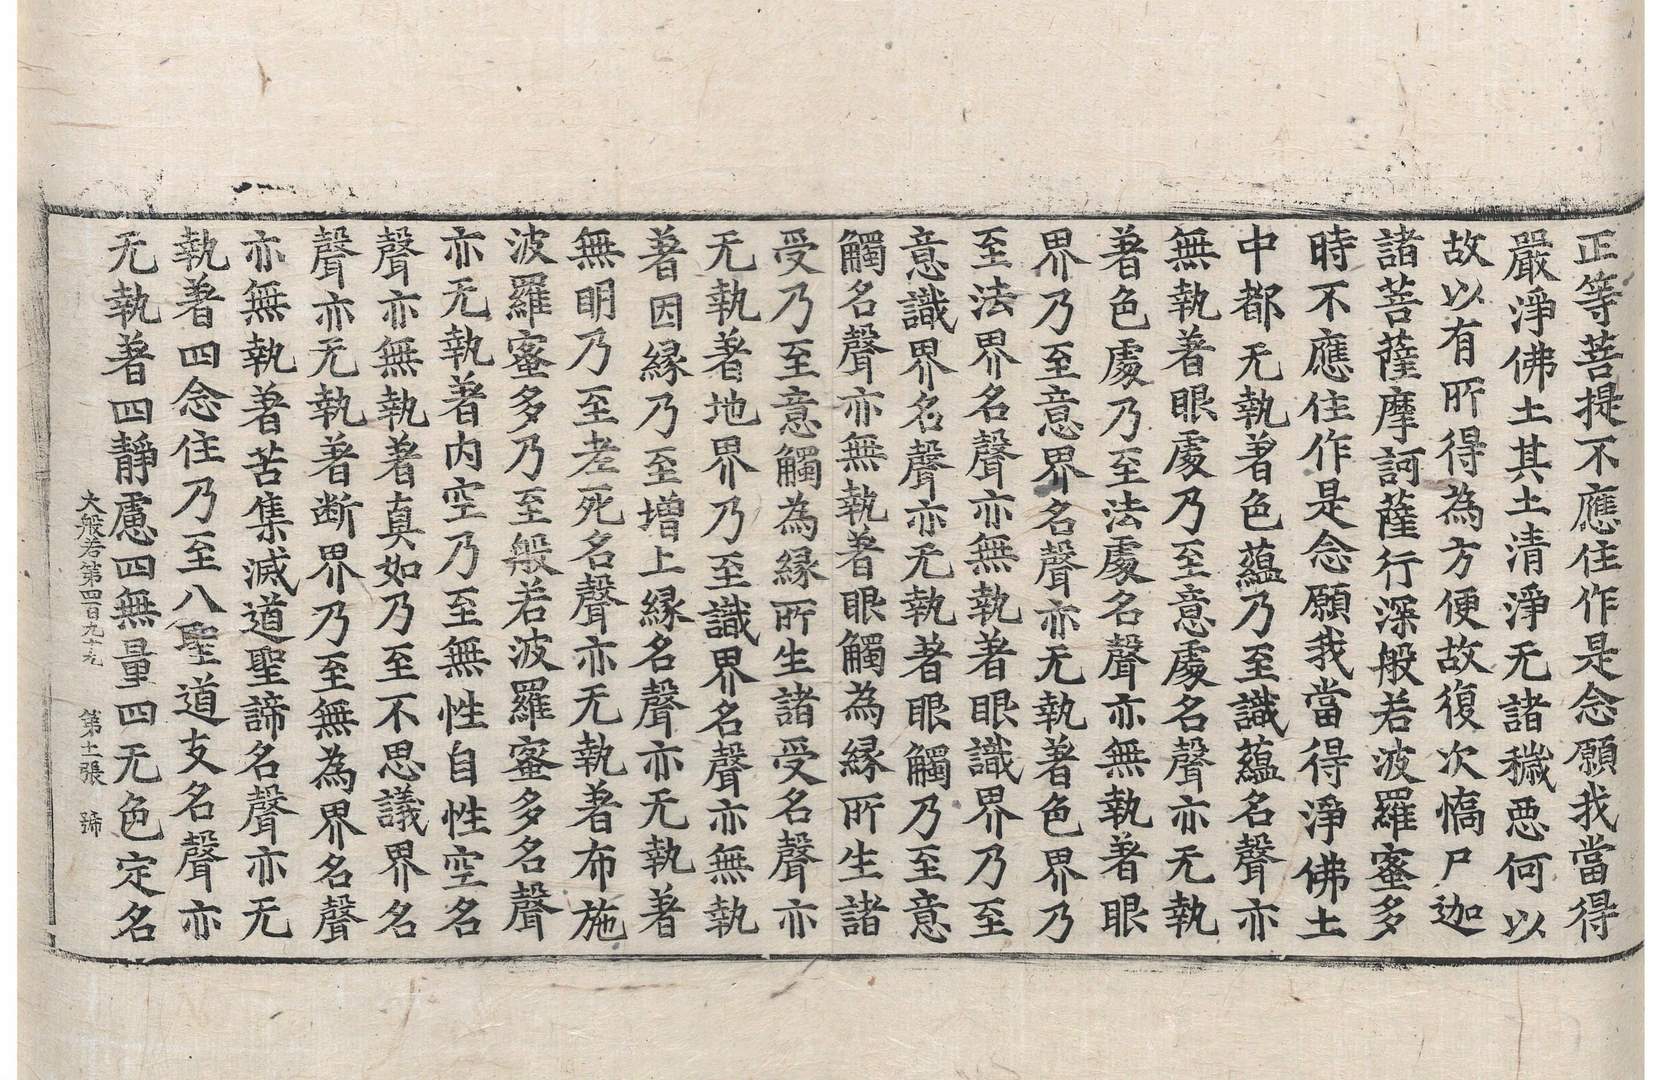 正等菩提不應住作是念願我當得
嚴淨佛土其土清淨无諸穢惡何以
故以有所得為方便故復次憍尸迦
諸菩薩摩訶薩行深般若波羅蜜多
時不應住作是念願我當得淨佛土
中都无執著色蘊乃至識蘊名聲亦
無執著眼處乃至意處名聲亦无執
著色處乃至法處名聲亦無執著眼
界乃至意界名聲亦无執著色界乃
至法界名聲亦無執著眼識界乃至
意識界名聲亦无執著眼觸乃至意
觸名聲亦無執著眼觸為縁所生諸
受乃至意觸為縁所生諸受名聲亦
无執著地界乃至識界名聲亦無執
著因縁乃至增上縁名聲亦无執著
無明乃至老死名聲亦无執著布施
波羅蜜多乃至般若波羅蜜多名聲
亦无執著内空乃至無性自性空名
聲亦無執著真如乃至不思議界名
聲亦无執著断界乃至無為界名聲
亦無執著苦集滅道聖諦名聲亦无
執著四念住乃至八聖道支名聲亦
无執著四靜慮四無量四无色定名
大般若第四百九十九 第十一張 號